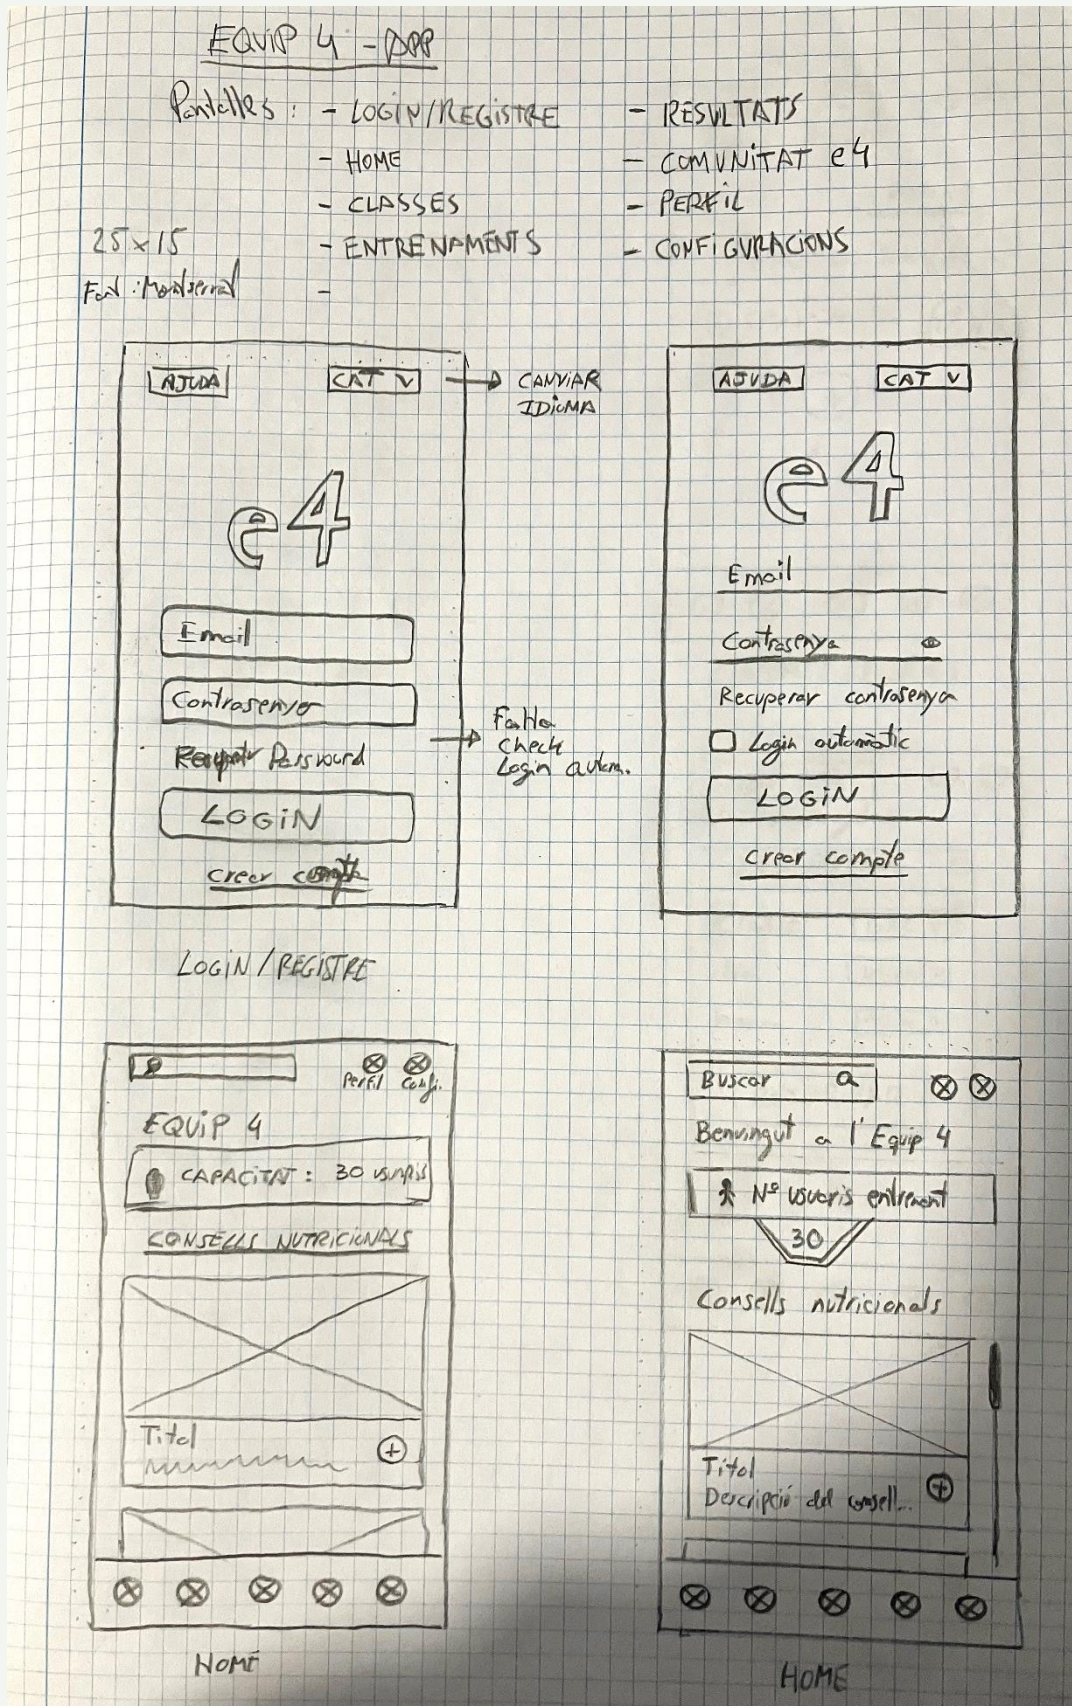 EQUIP 4 - APP
Pantalles: - LOGIN/REGISTRE
- HOME
- CLASSES
- ENTRENAMENTS
-
- RESULTATS
- COMUNITAT e4
- PERFIL
- CONFIGURACIONS
25x15
Font: Montserrat
AJUDA CAT V
CANVIAR
IDIOMA
e4
Email
Contrasenya
Password
Falta
Check
Login autom.
LOGIN
crear
LOGIN/REGISTRE
AJUDA CAT V
e4
Email
Contrasenya
Recuperar contrasenya
Login automàtic
LOGIN
crear compte
Perfil Config.
EQUIP 4
CAPACITAT: 30 usuaris
CONSELLS NUTRICIONALS
Titol
HOME
Buscar
Benvingut a l'Equip 4
Nº usuaris entrenant
30
Consells nutricionals
Títol
Descripció del consell...
HOME